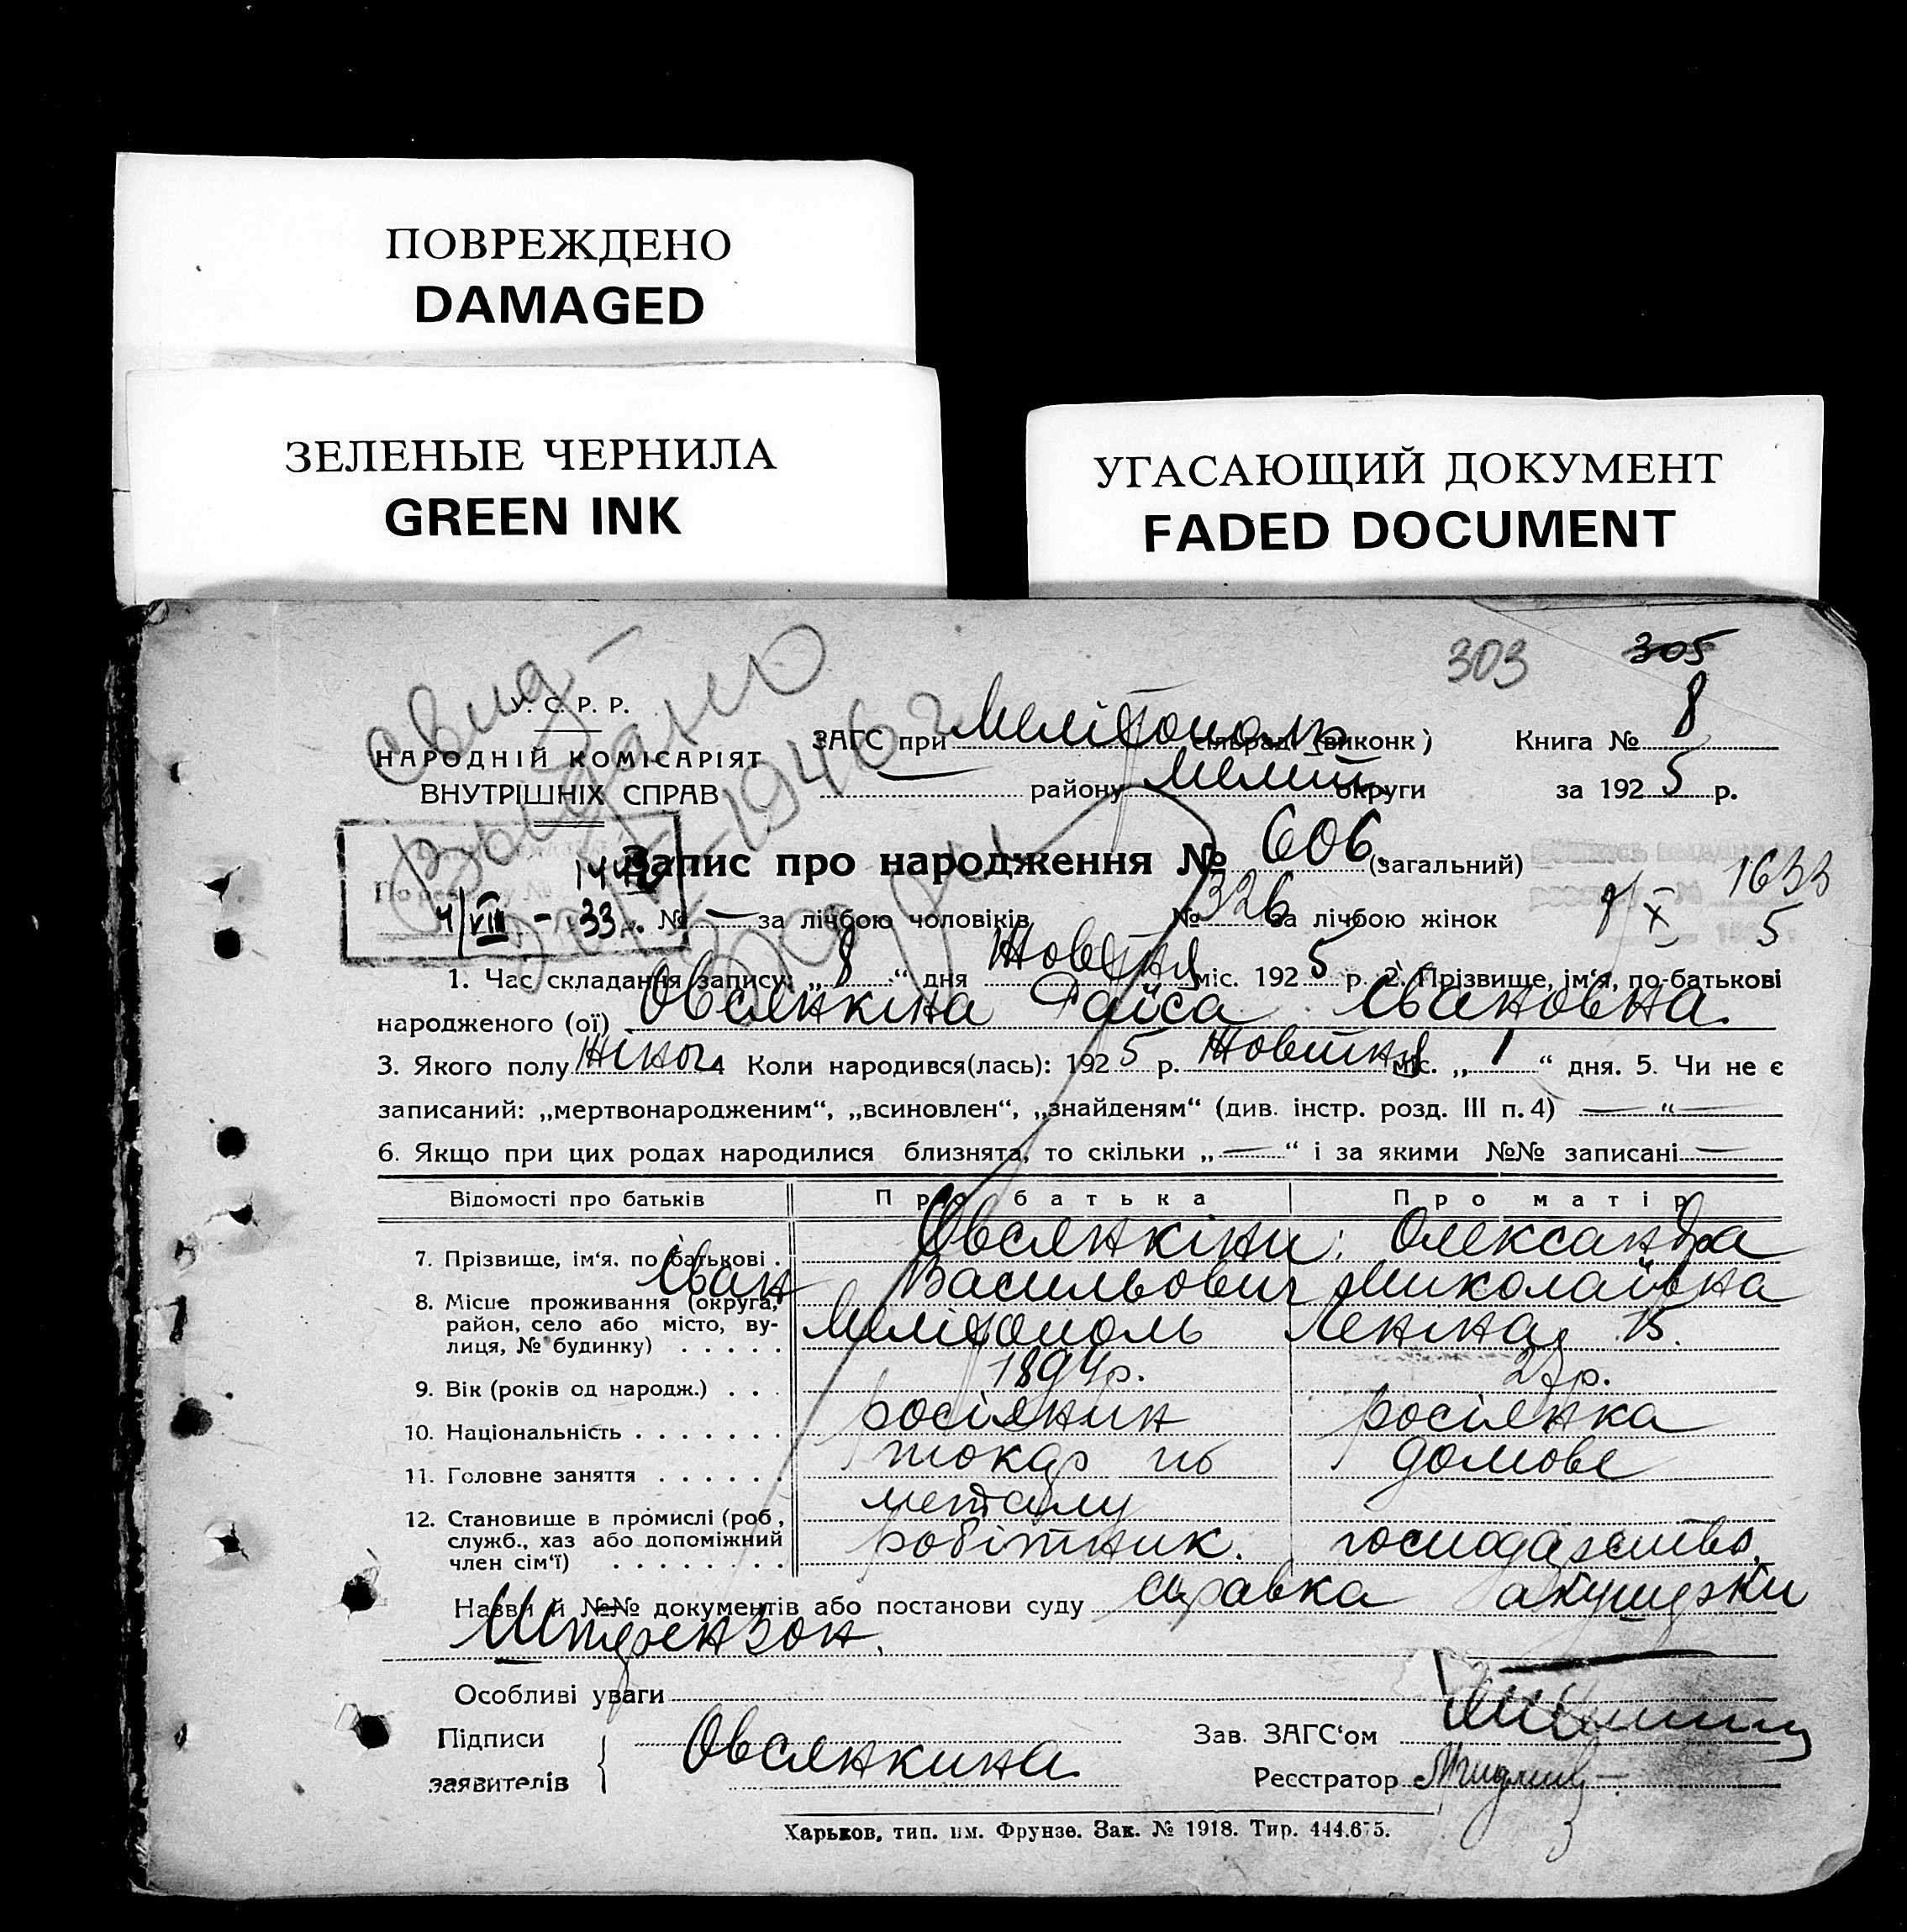 ПОВРЕЖДЕНО
DAMAGED
ЗЕЛЕНЫЕ ЧЕРНИЛА
GREEN INK
УГАСАЮЩИЙ ДОКУМЕНТ
FADED DOCUMENT
303 305
свид-
Выдано
1946 г
У. С. Р. Р.
НАРОДНІЙ КОМІСАРІЯТ
ВНУТРІШНІХ СПРАВ
ЗАГС при Мелітополь сільраді (виконк) Книга № 8
— району Мелит. округи за 1925 р.
Запис про народження № 606 (загальний)
4/VIII - 33 № — за лічбою чоловіків № 326 за лічбою жінок
1633
X 5
1. Час складання запису: „8“ дня Жовтня міс. 1925 р. 2. Прізвище, ім‘я, по-батькові
народженого (ої) Овсянкіна Раїса Івановна.
3. Якого полу жіноч. 4 Коли народився(лась): 1925 р. Жовтня міс. „1“ дня. 5. Чи не є
записаний: „мертвонародженим“, „всиновлен“, „знайденям“ (див. інстр. розд. III п. 4) — “ —
6. Якщо при цих родах народилися близнята, то скільки „—“ і за якими №№ записані —
Відомості про батьків Про батька Про матір
7. Прізвище, ім‘я. по батькові . Овсянкіни: Олександра
Іван Васильович Миколаївна
8. Місце проживання (округа, район, село або місто, вулиця, № будинку) . . . . . Мелітополь Леніна 15.
9. Вік (років од народж.) . . . 1894р. 27р.
10. Національність . . . . . . . росіянин росіянка
11. Головне заняття . . . . . . токар по домове
металу
12. Становище в промислі (роб, служб., хаз або допоміжний член сім‘ї) . . . . . . . . робітник. господарство.
Назви й №№ документів або постанови суду справка акушерки
Штерензон.
Особливі уваги
Підписи
заявителів Овсянкина
Зав. ЗАГС‘ом
Реєстратор
Харьков, тип. им. Фрунзе. Зак. № 1918. Тир. 444.675.